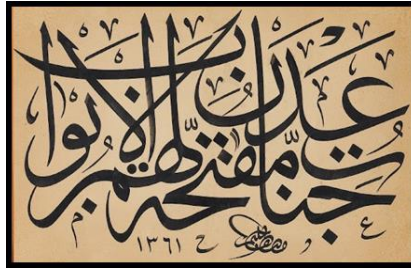 جنات عدن مفتحة لهم الأبواب
١٣٦١